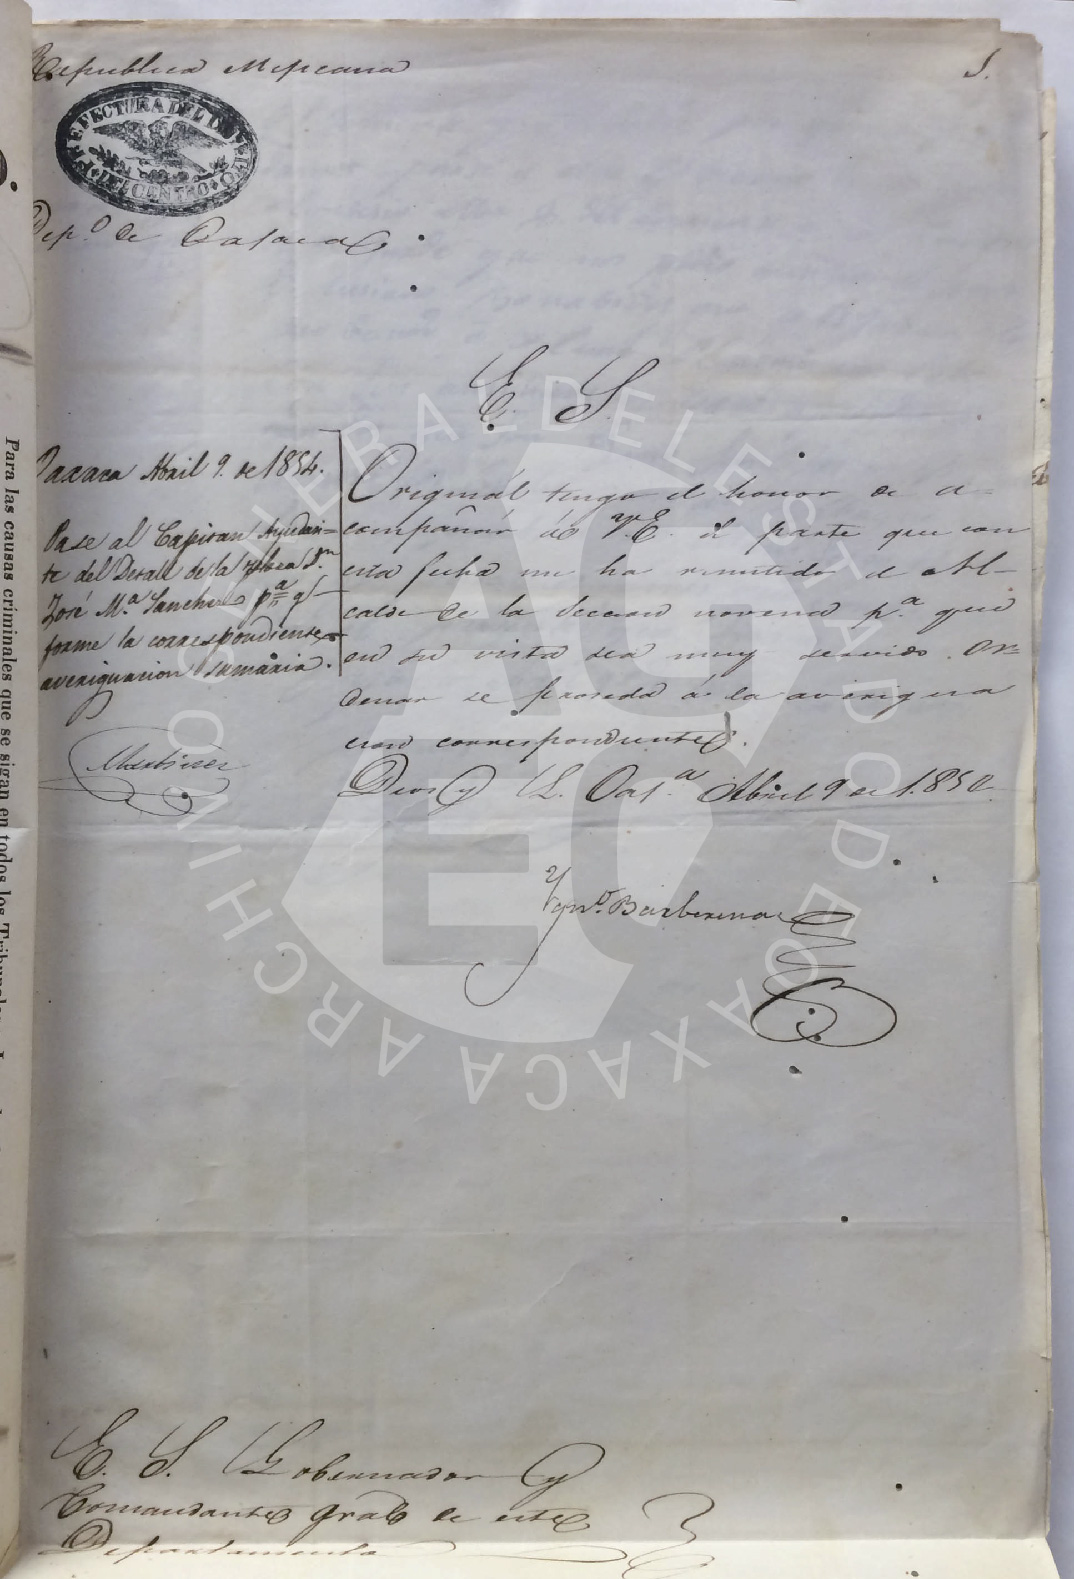 Republica Mexicana
1.
PREFECTURA DEL DISTRITO
DEL CENTRO
Dep.º de Oajaca
E. S.
Oaxaca Abril 9. de 1854.
Pase al Capitan Ayudan=
te del Detall de la plaza D.n
José M.a Sanches p.a q.e
forme la correspondiente
averiguacion sumaria.
Martinez
Original tengo el honor de a=
compañar á V.E. el parte que con
esta fecha me ha remitido el Al=
calde de la seccion novena p.a que
en su vista sea muy servido. or=
denar se proseda á la averigua
cion correspondiente.
Dios y L. Oaj.a Abril 9 de 1.854
Ygn.o Barberena
E. S. Gobernador y
Comandante gral de este
Departamento
Para las causas criminales que se sigan en todos los Tribunales
ARCHIVO GENERAL DEL ESTADO DE OAXACA